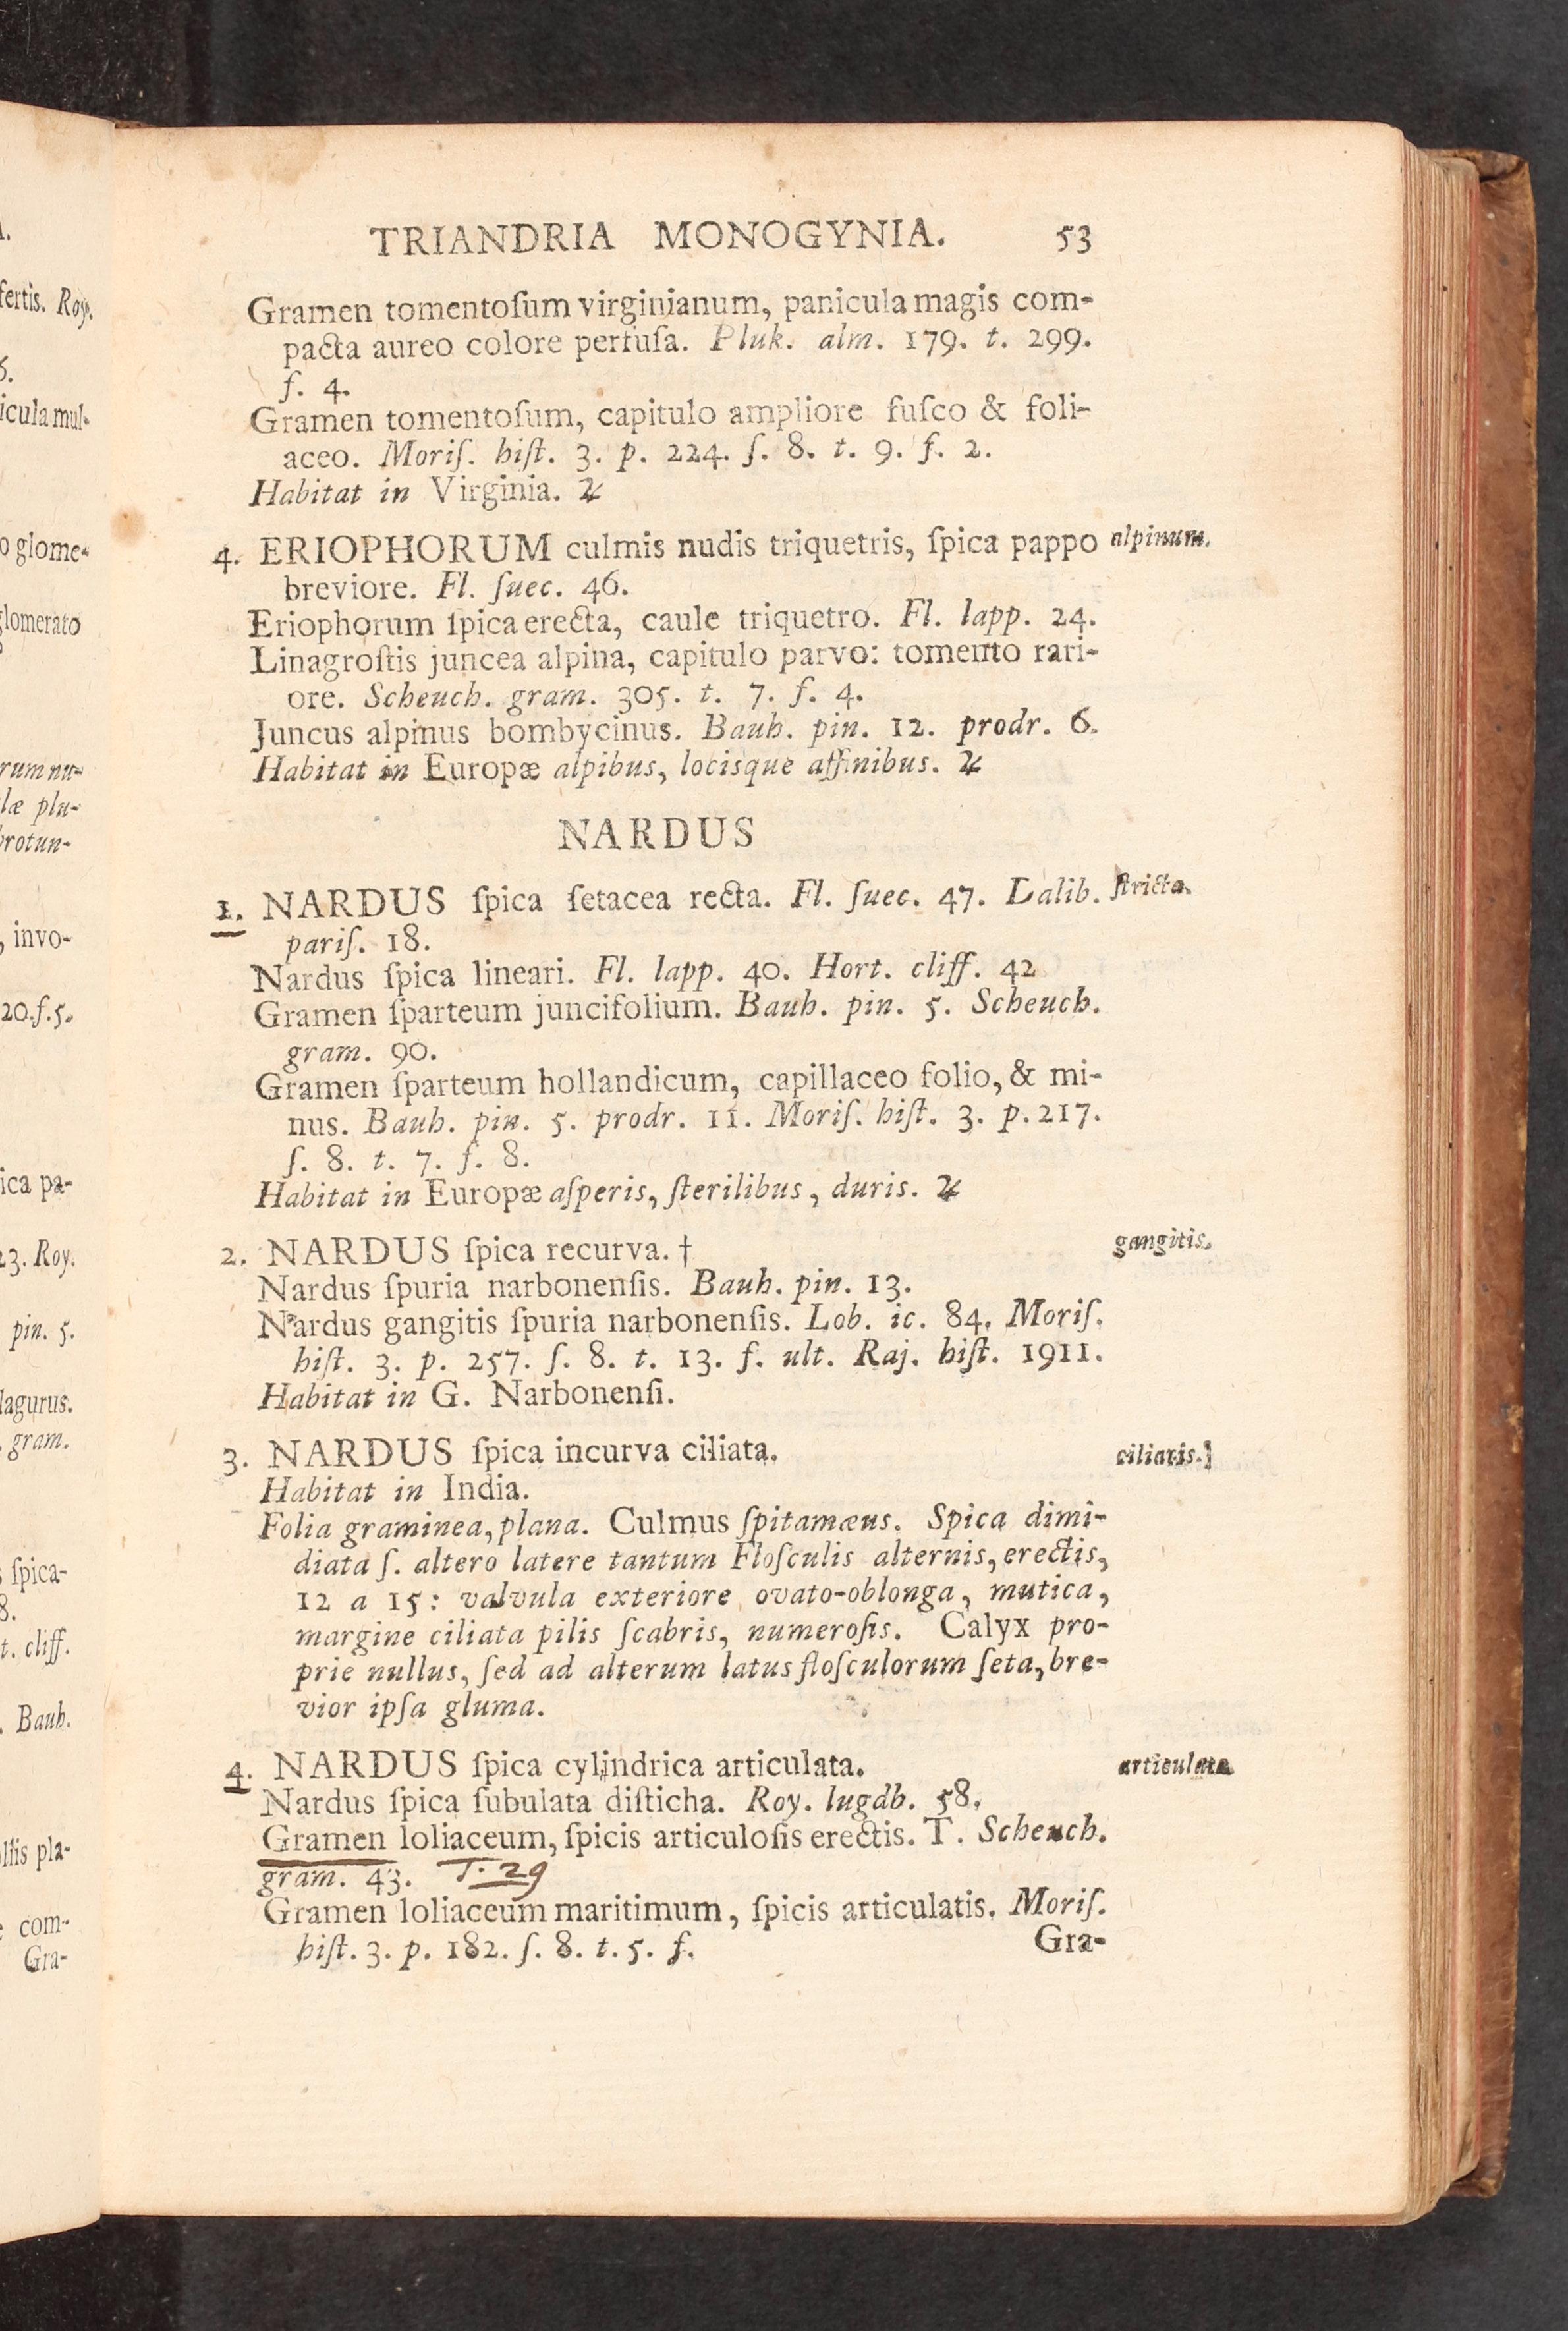 TRIANDRIA MONOGYNIA. 53
Gramen tomentoſum virginianum, panicula magis com-
pacta aureo colore perfuſa. Pluk. alm. 179. t. 299.
f. 4.
Gramen tomentoſum, capitulo ampliore fuſco & foli-
aceo. Moriſ. hiſt. 3. p. 224. ſ. 8. t. 9. f. 2.
Habitat in Virginia. ♃
4. ERIOPHORUM culmis nudis triquetris, ſpica pappo alpinum.
breviore. Fl. ſuec. 46.
Eriophorum ſpica erecta, caule triquetro. Fl. lapp. 24.
Linagroſtis juncea alpina, capitulo parvo: tomento rari-
ore. Scheuch. gram. 305. t. 7. f. 4.
Juncus alpinus bombycinus. Bauh. pin. 12. prodr. 6.
Habitat in Europæ alpibus, locisque affinibus. ♃
NARDUS
1. NARDUS ſpica ſetacea recta. Fl. ſuec. 47. Dalib. ſtricta.
pariſ. 18.
Nardus ſpica lineari. Fl. lapp. 40. Hort. cliff. 42
Gramen ſparteum juncifolium. Bauh. pin. 5. Scheuch.
gram. 90.
Gramen ſparteum hollandicum, capillaceo folio, & mi-
nus. Bauh. pin. 5. prodr. 11. Moriſ. hiſt. 3. p. 217.
ſ. 8. t. 7. f. 8.
Habitat in Europæ aſperis, ſterilibus, duris. ♃
2. NARDUS ſpica recurva. † gangitis.
Nardus ſpuria narbonenſis. Bauh. pin. 13.
Nardus gangitis ſpuria narbonenſis. Lob. ic. 84. Moriſ.
hiſt. 3. p. 257. ſ. 8. t. 13. f. ult. Raj. hiſt. 1911.
Habitat in G. Narbonenſi.
3. NARDUS ſpica incurva ciliata. ciliaris.]
Habitat in India.
Folia graminea, plana. Culmus ſpitamæus. Spica dimi-
diata ſ. altero latere tantum Floſculis alternis, erectis,
12 a 15: valvula exteriore ovato-oblonga, mutica,
margine ciliata pilis ſcabris, numeroſis. Calyx pro-
prie nullus, ſed ad alterum latus floſculorum ſeta, bre-
vior ipſa gluma.
4. NARDUS ſpica cylindrica articulata. articulata.
Nardus ſpica ſubulata diſticha. Roy. lugdb. 58.
Gramen loliaceum, ſpicis articuloſis erectis. T. Scheuch.
gram. 43. T. 29
Gramen loliaceum maritimum, ſpicis articulatis. Moriſ.
hiſt. 3. p. 182. ſ. 8. t. 5. f.
Gra-
fertis. Roy.
icula mul-
o glome-
glomerato
rum nu-
læ plu-
rotun-
, invo-
20. f. 5.
ica pa-
23. Roy.
pin. 5.
lagurus.
gram.
ſpica-
8.
t. cliff.
. Bauh.
pla-
com-
Gra-